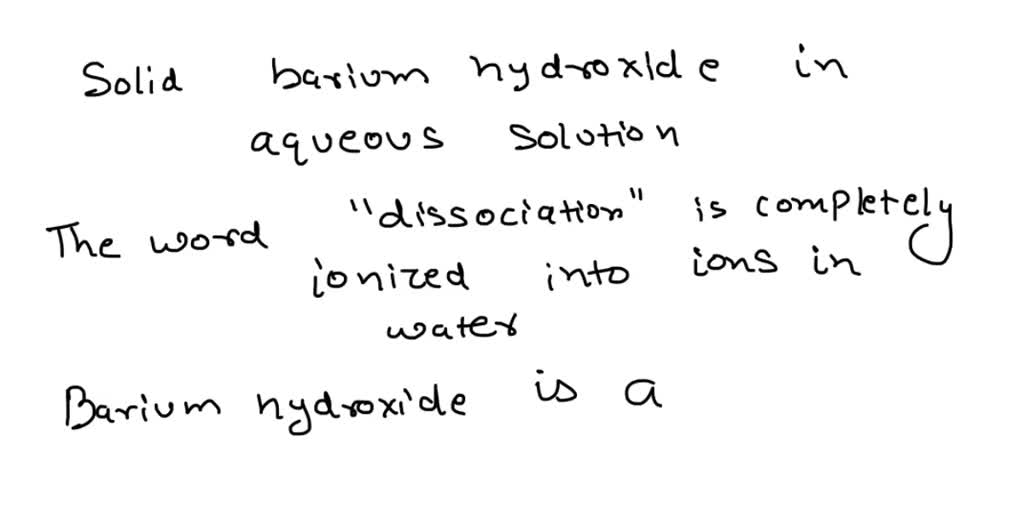 Solid barium hydroxide in
aqueous solution
The word "dissociation" is completely
ionized into ions in
water
Barium hydroxide is a